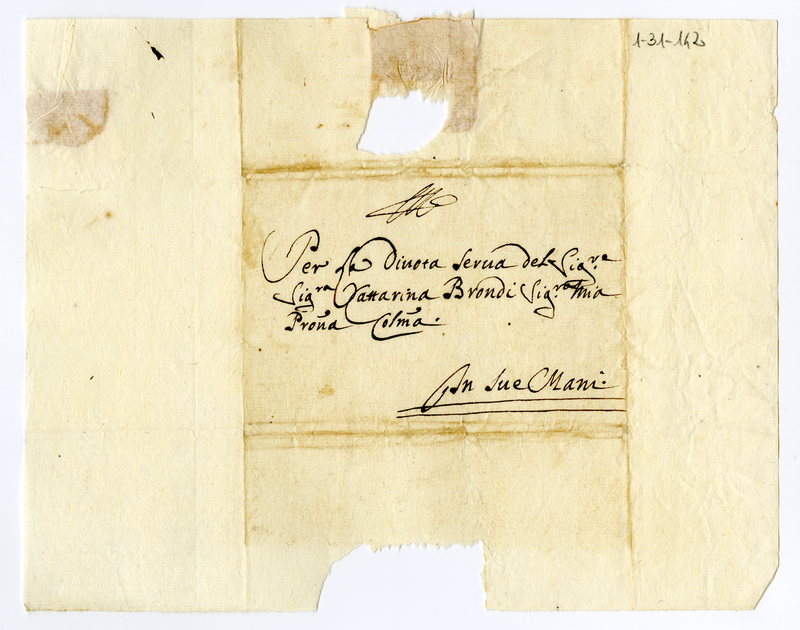 1-31-142
Per la Diuota Serua del Sig.re
Sig.ra Cattarina Brondi Sig.ra Mia
Pro͞na Colm͞a.
In Sue Mani.